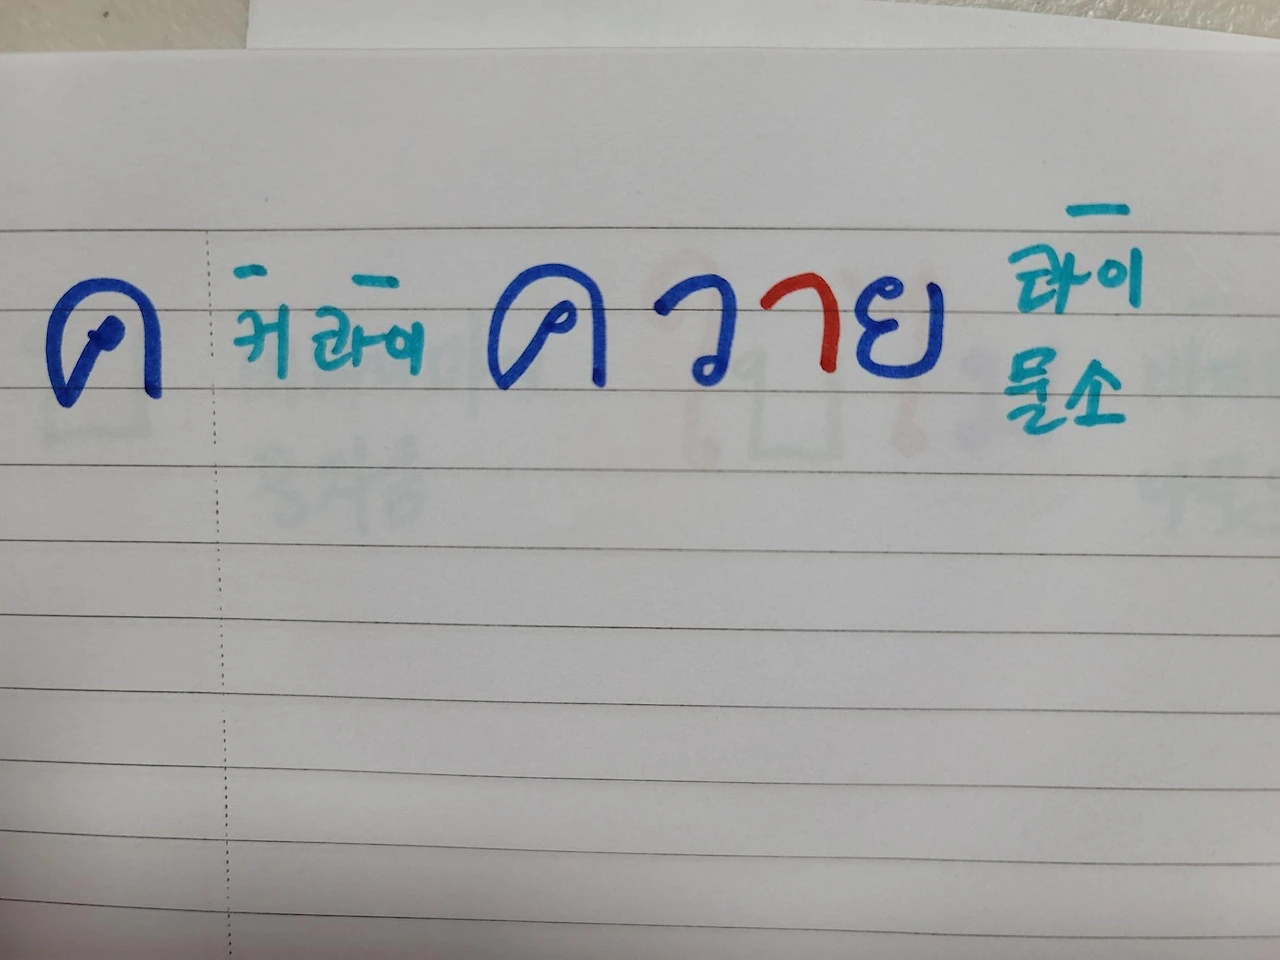 ค 커 콰이 ควาย 콰이
물소